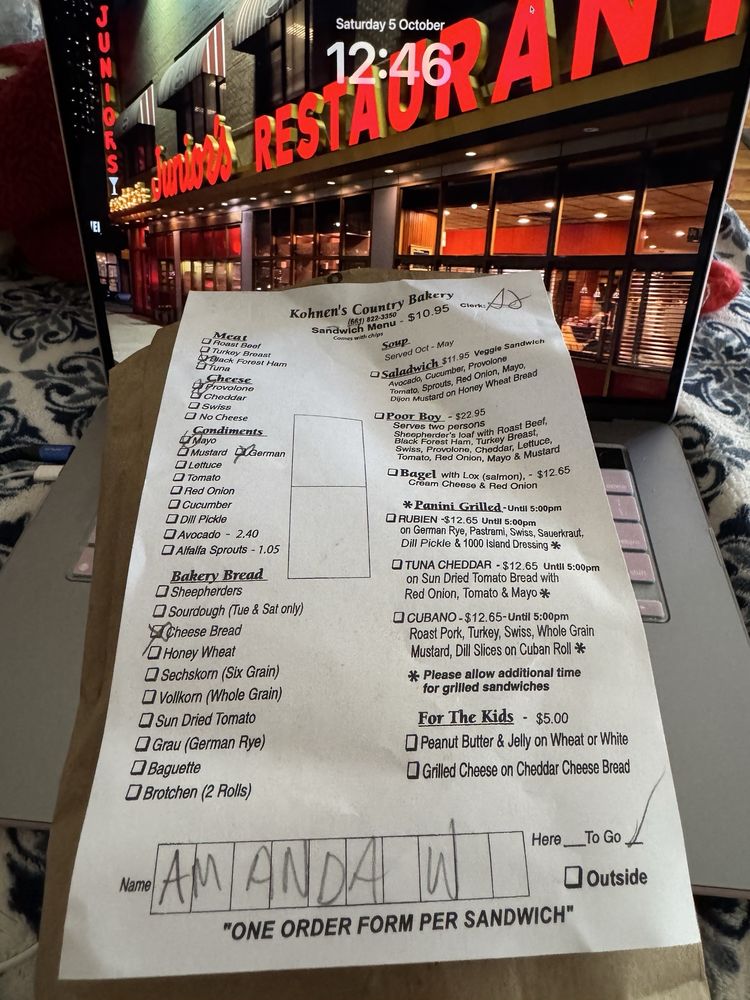 Saturday 5 October
12:46
JUNIORS
Junior's RESTAURANT
Kohnen's Country Bakery
(661) 822-3350
Clerk:
Sandwich Menu - $10.95
Comes with chips
Meat
Roast Beef
Turkey Breast
Black Forest Ham
Tuna
Cheese
Provolone
Cheddar
Swiss
No Cheese
Condiments
Mayo
Mustard German
Lettuce
Tomato
Red Onion
Cucumber
Dill Pickle
Avocado - 2.40
Alfalfa Sprouts - 1.05
Bakery Bread
Sheepherders
Sourdough (Tue & Sat only)
Cheese Bread
Honey Wheat
Sechskorn (Six Grain)
Vollkorn (Whole Grain)
Sun Dried Tomato
Grau (German Rye)
Baguette
Brotchen (2 Rolls)
Soup
Served Oct - May
Saladwich $11.95 Veggie Sandwich
Avocado, Cucumber, Provolone
Tomato, Sprouts, Red Onion, Mayo,
Dijon Mustard on Honey Wheat Bread
Poor Boy - $22.95
Serves two persons
Sheepherder's loaf with Roast Beef,
Black Forest Ham, Turkey Breast,
Swiss, Provolone, Cheddar, Lettuce,
Tomato, Red Onion, Mayo & Mustard
Bagel with Lox (salmon), - $12.65
Cream Cheese & Red Onion
* Panini Grilled - Until 5:00pm
RUBIEN -$12.65 Until 5:00pm
on German Rye, Pastrami, Swiss, Sauerkraut,
Dill Pickle & 1000 Island Dressing *
TUNA CHEDDAR - $12.65 Until 5:00pm
on Sun Dried Tomato Bread with
Red Onion, Tomato & Mayo *
CUBANO - $12.65- Until 5:00pm
Roast Pork, Turkey, Swiss, Whole Grain
Mustard, Dill Slices on Cuban Roll *
* Please allow additional time
for grilled sandwiches
For The Kids - $5.00
Peanut Butter & Jelly on Wheat or White
Grilled Cheese on Cheddar Cheese Bread
Here __ To Go
Name AMANDA W
Outside
"ONE ORDER FORM PER SANDWICH"